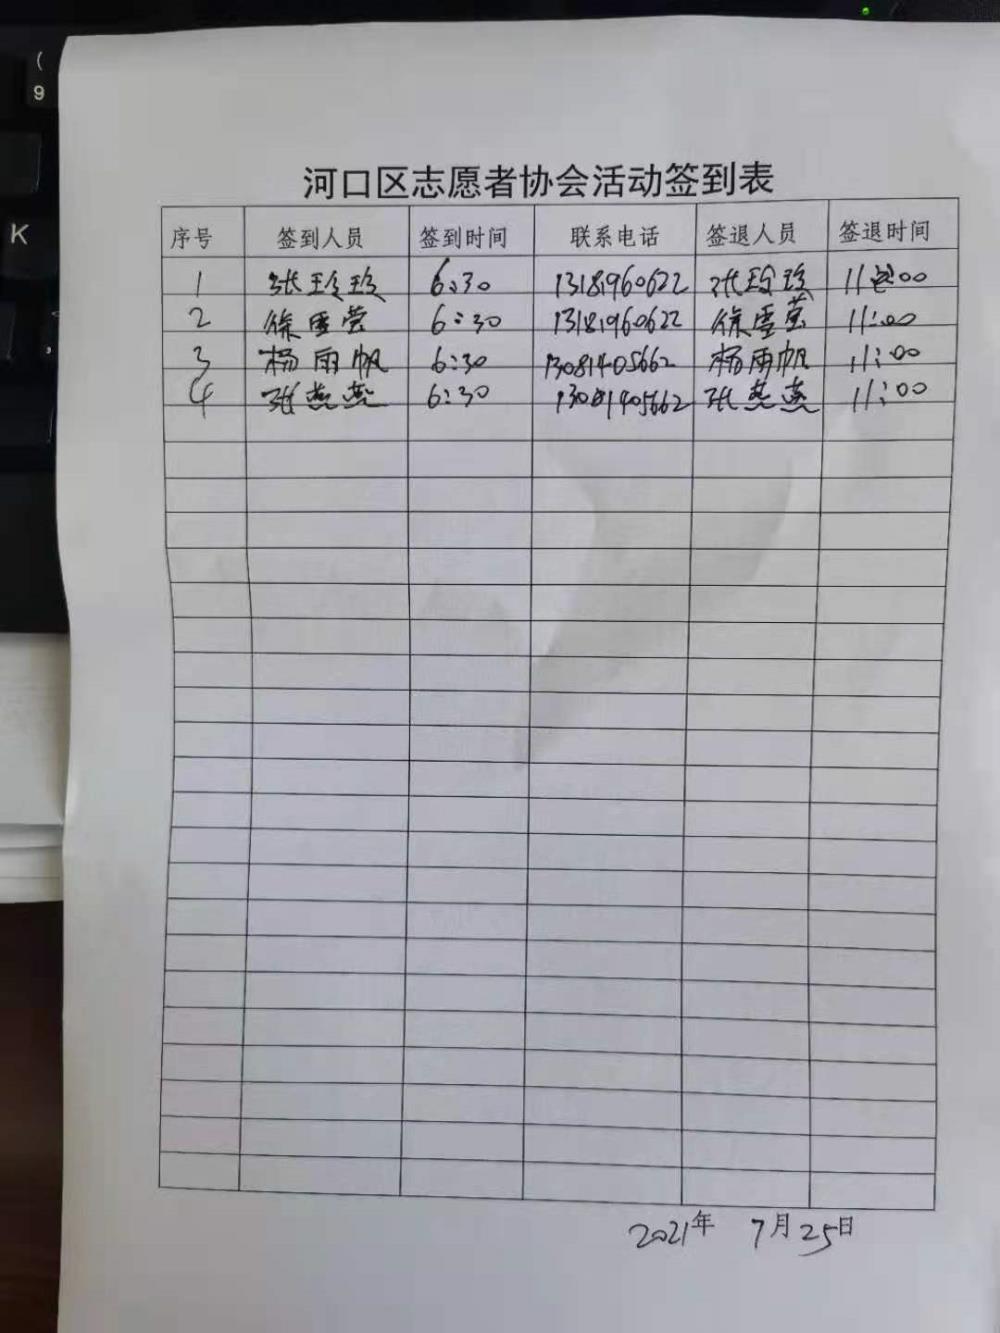 (
9
K
河口区志愿者协会活动签到表
序号 签到人员 签到时间 联系电话 签退人员 签退时间
1 张玲玲 6:30 13181960622 张玲玲 11:00
2 徐雪莹 6:30 13181960622 徐雪莹 11:00
3 杨雨帆 6:30 13081405662 杨雨帆 11:00
4 张燕燕 6:30 13081405662 张燕燕 11:00
2021年 7月25日